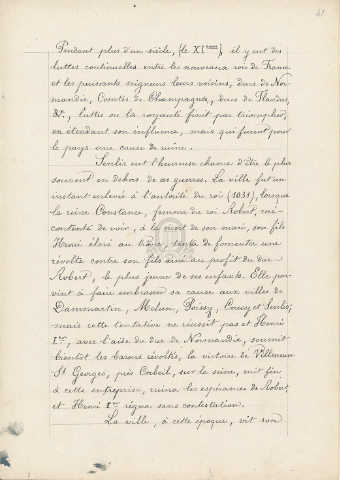 41
Pendant plus d'un siècle, (le XIème), il y eut des
luttes continuelles entre les nouveaux rois de France
et les puissants seigneurs leurs voisins, ducs de Nor-
mandie, Comtes de Champagne, ducs de Flandres,
&c., luttes où la royauté finit par triompher,
en étendant son influence, mais qui furent pour
le pays une cause de ruine.
Senlis eut l'heureuse chance d'être le plus
souvent en dehors de ces guerres. La ville fut un
instant enlevée à l'autorité du roi (1031), lorsque
la reine Constance, femme du roi Robert, mé-
contente de voir, à la mort de son mari, son fils
Henri élevé au trône, tenta de fomenter une
révolte contre son fils aîné au profit du duc
Robert, le plus jeune de ses enfants. Elle par-
vint à faire embrasser sa cause aux villes de
Dammartin, Melun, Poissy, Coucy et Senlis;
mais cette tentative ne réussit pas et Henri
Ier, avec l'aide du duc de Normandie, soumit
bientôt les barons révoltés, la victoire de Villeneuve
St Georges, près Corbeil, sur la Seine, mit fin
à cette entreprise, ruina les espérances de Robert,
et Henri Ier régna sans contestation.
La ville, à cette époque, vit son